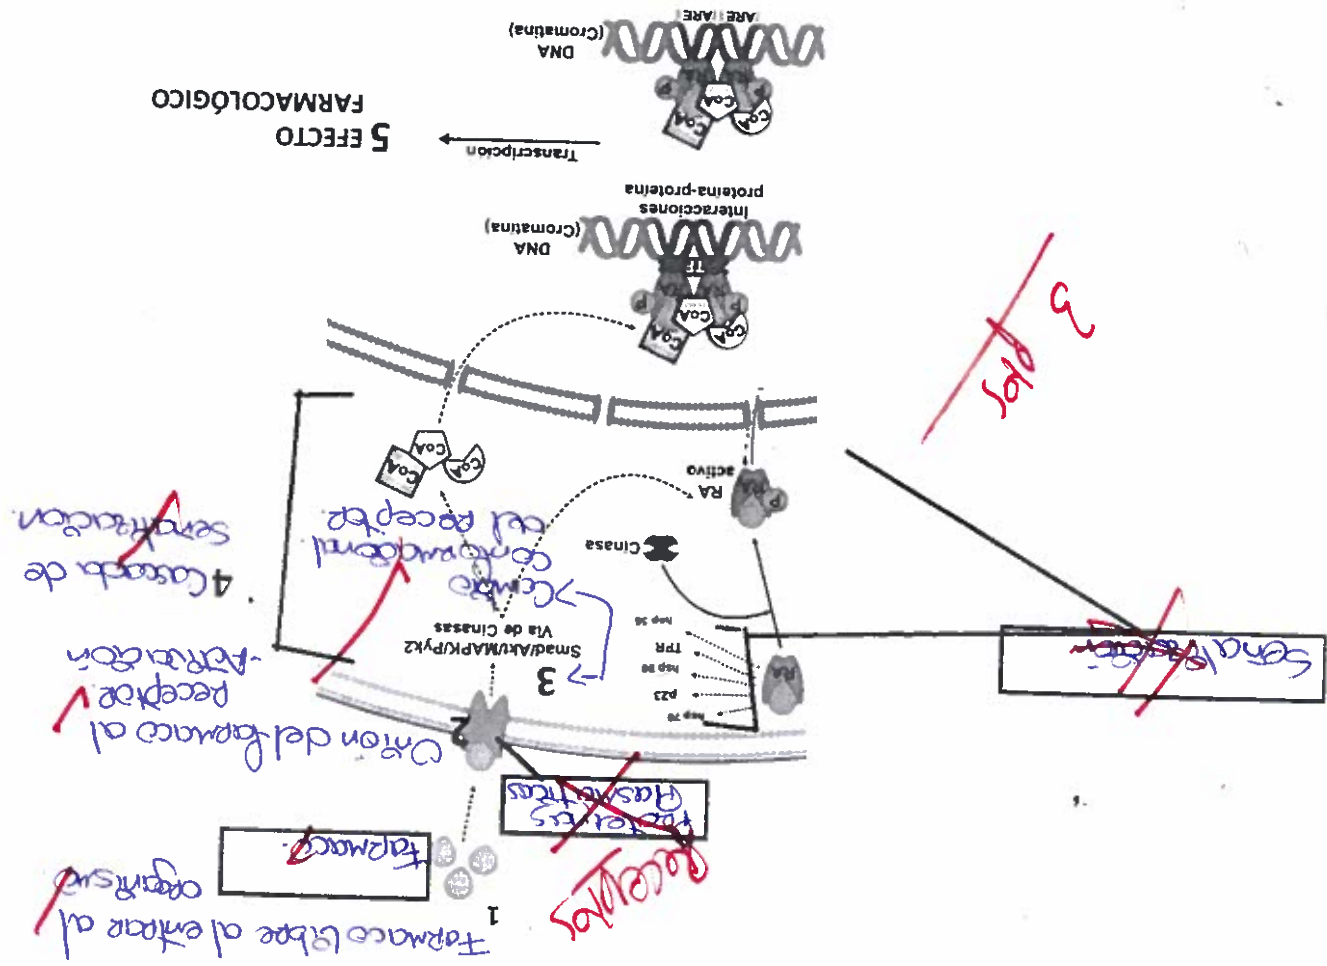 Farmaco libre al entrar al
organismo
1
Farmaco.
Receptor
Proteinas
Plasmaticas
2
Unión del farmaco al
receptor.
-Activación
hsp 70
p23
hsp 90
TPR
hsp 56
RA
3
Smad/Akt/MAPK/Pyk2
Vía de Cinasas
Cambio
conformacional
del receptor.
4 Cascada de
señalización.
Señalización
Cinasa
RA
activo
RA
P
CoA
CoA
CoA
3 ptos
CoA
CoA
CoA
P
P
RA
RA
TF
DNA
(Cromatina)
Interacciones
proteína-proteína
Transcripción
5 EFECTO
FARMACOLÓGICO
CoA
CoA
CoA
P
P
RA
RA
DNA
(Cromatina)
ARE ARE